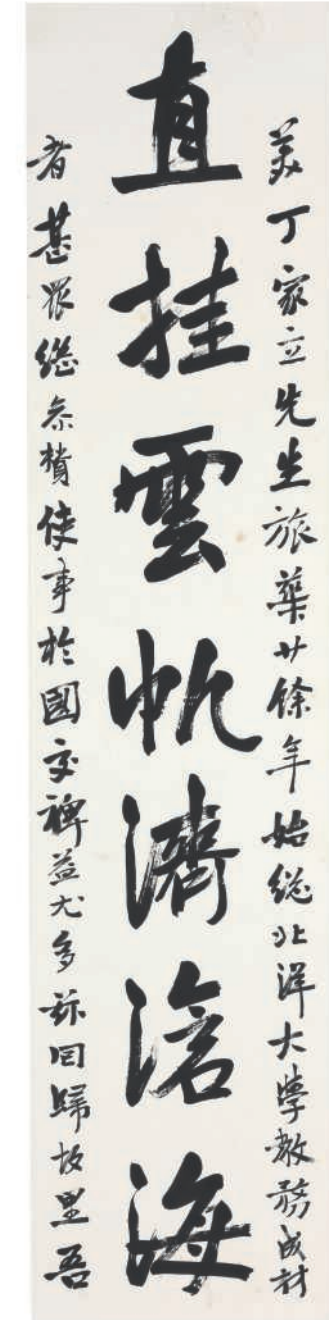 美丁家立先生旅華廿餘年始總北洋大學教務成材
直挂雲帆濟滄海
者甚眾繼參贊使事於國交裨益尤多茲因歸故里吾